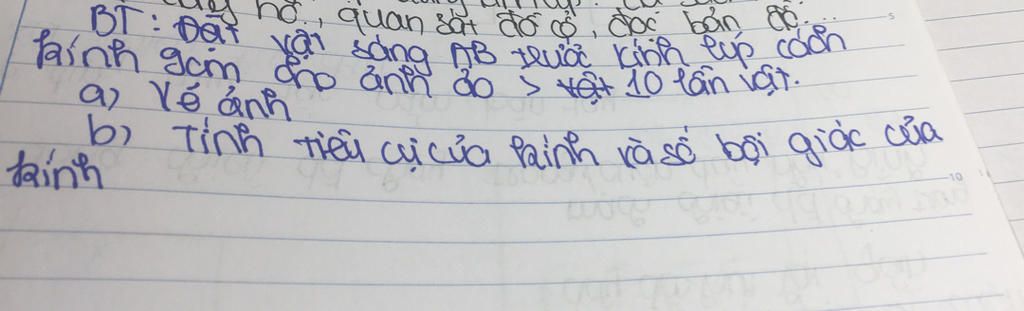 hồ, quan sát đồ cổ, đọc bản đồ...
BT: Đặt vật sáng AB trước kính lúp cách
kính 9cm cho ảnh ảo > vật 10 lần vật.
a) Vẽ ảnh
b) Tính tiêu cự của kính và số bội giác của
kính
5
10